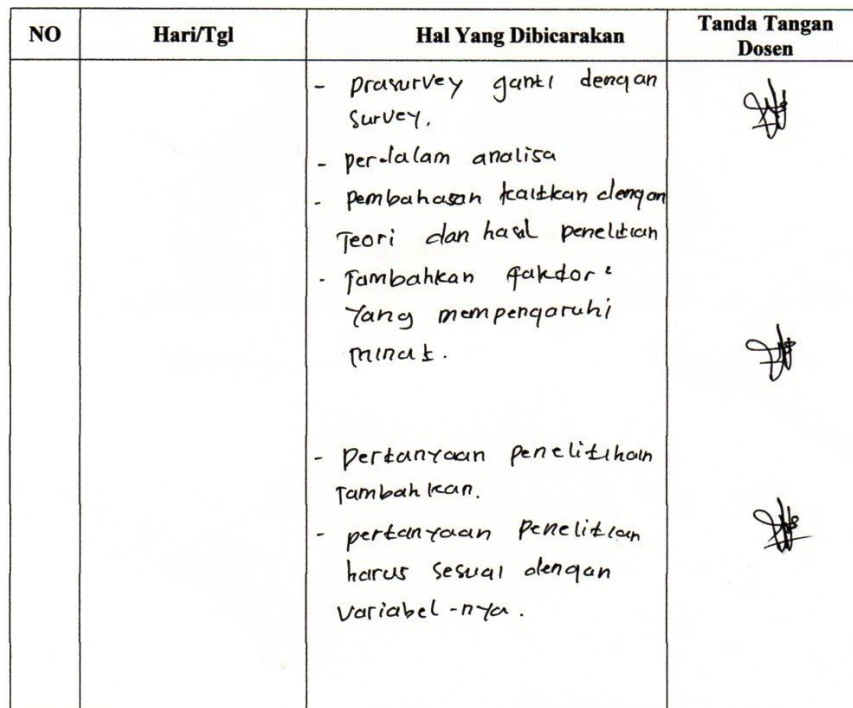 NO Hari/Tgl Hal Yang Dibicarakan Tanda Tangan
Dosen
- prasurvey ganti dengan
survey.
- perdalam analisa
- pembahasan kaitkan dengan
Teori dan hasil penelitian
- Tambahkan faktor²
yang mempengaruhi
minat.
- pertanyaan penelitihan
Tambahkan.
- pertanyaan penelitian
harus sesuai dengan
variabel-nya.